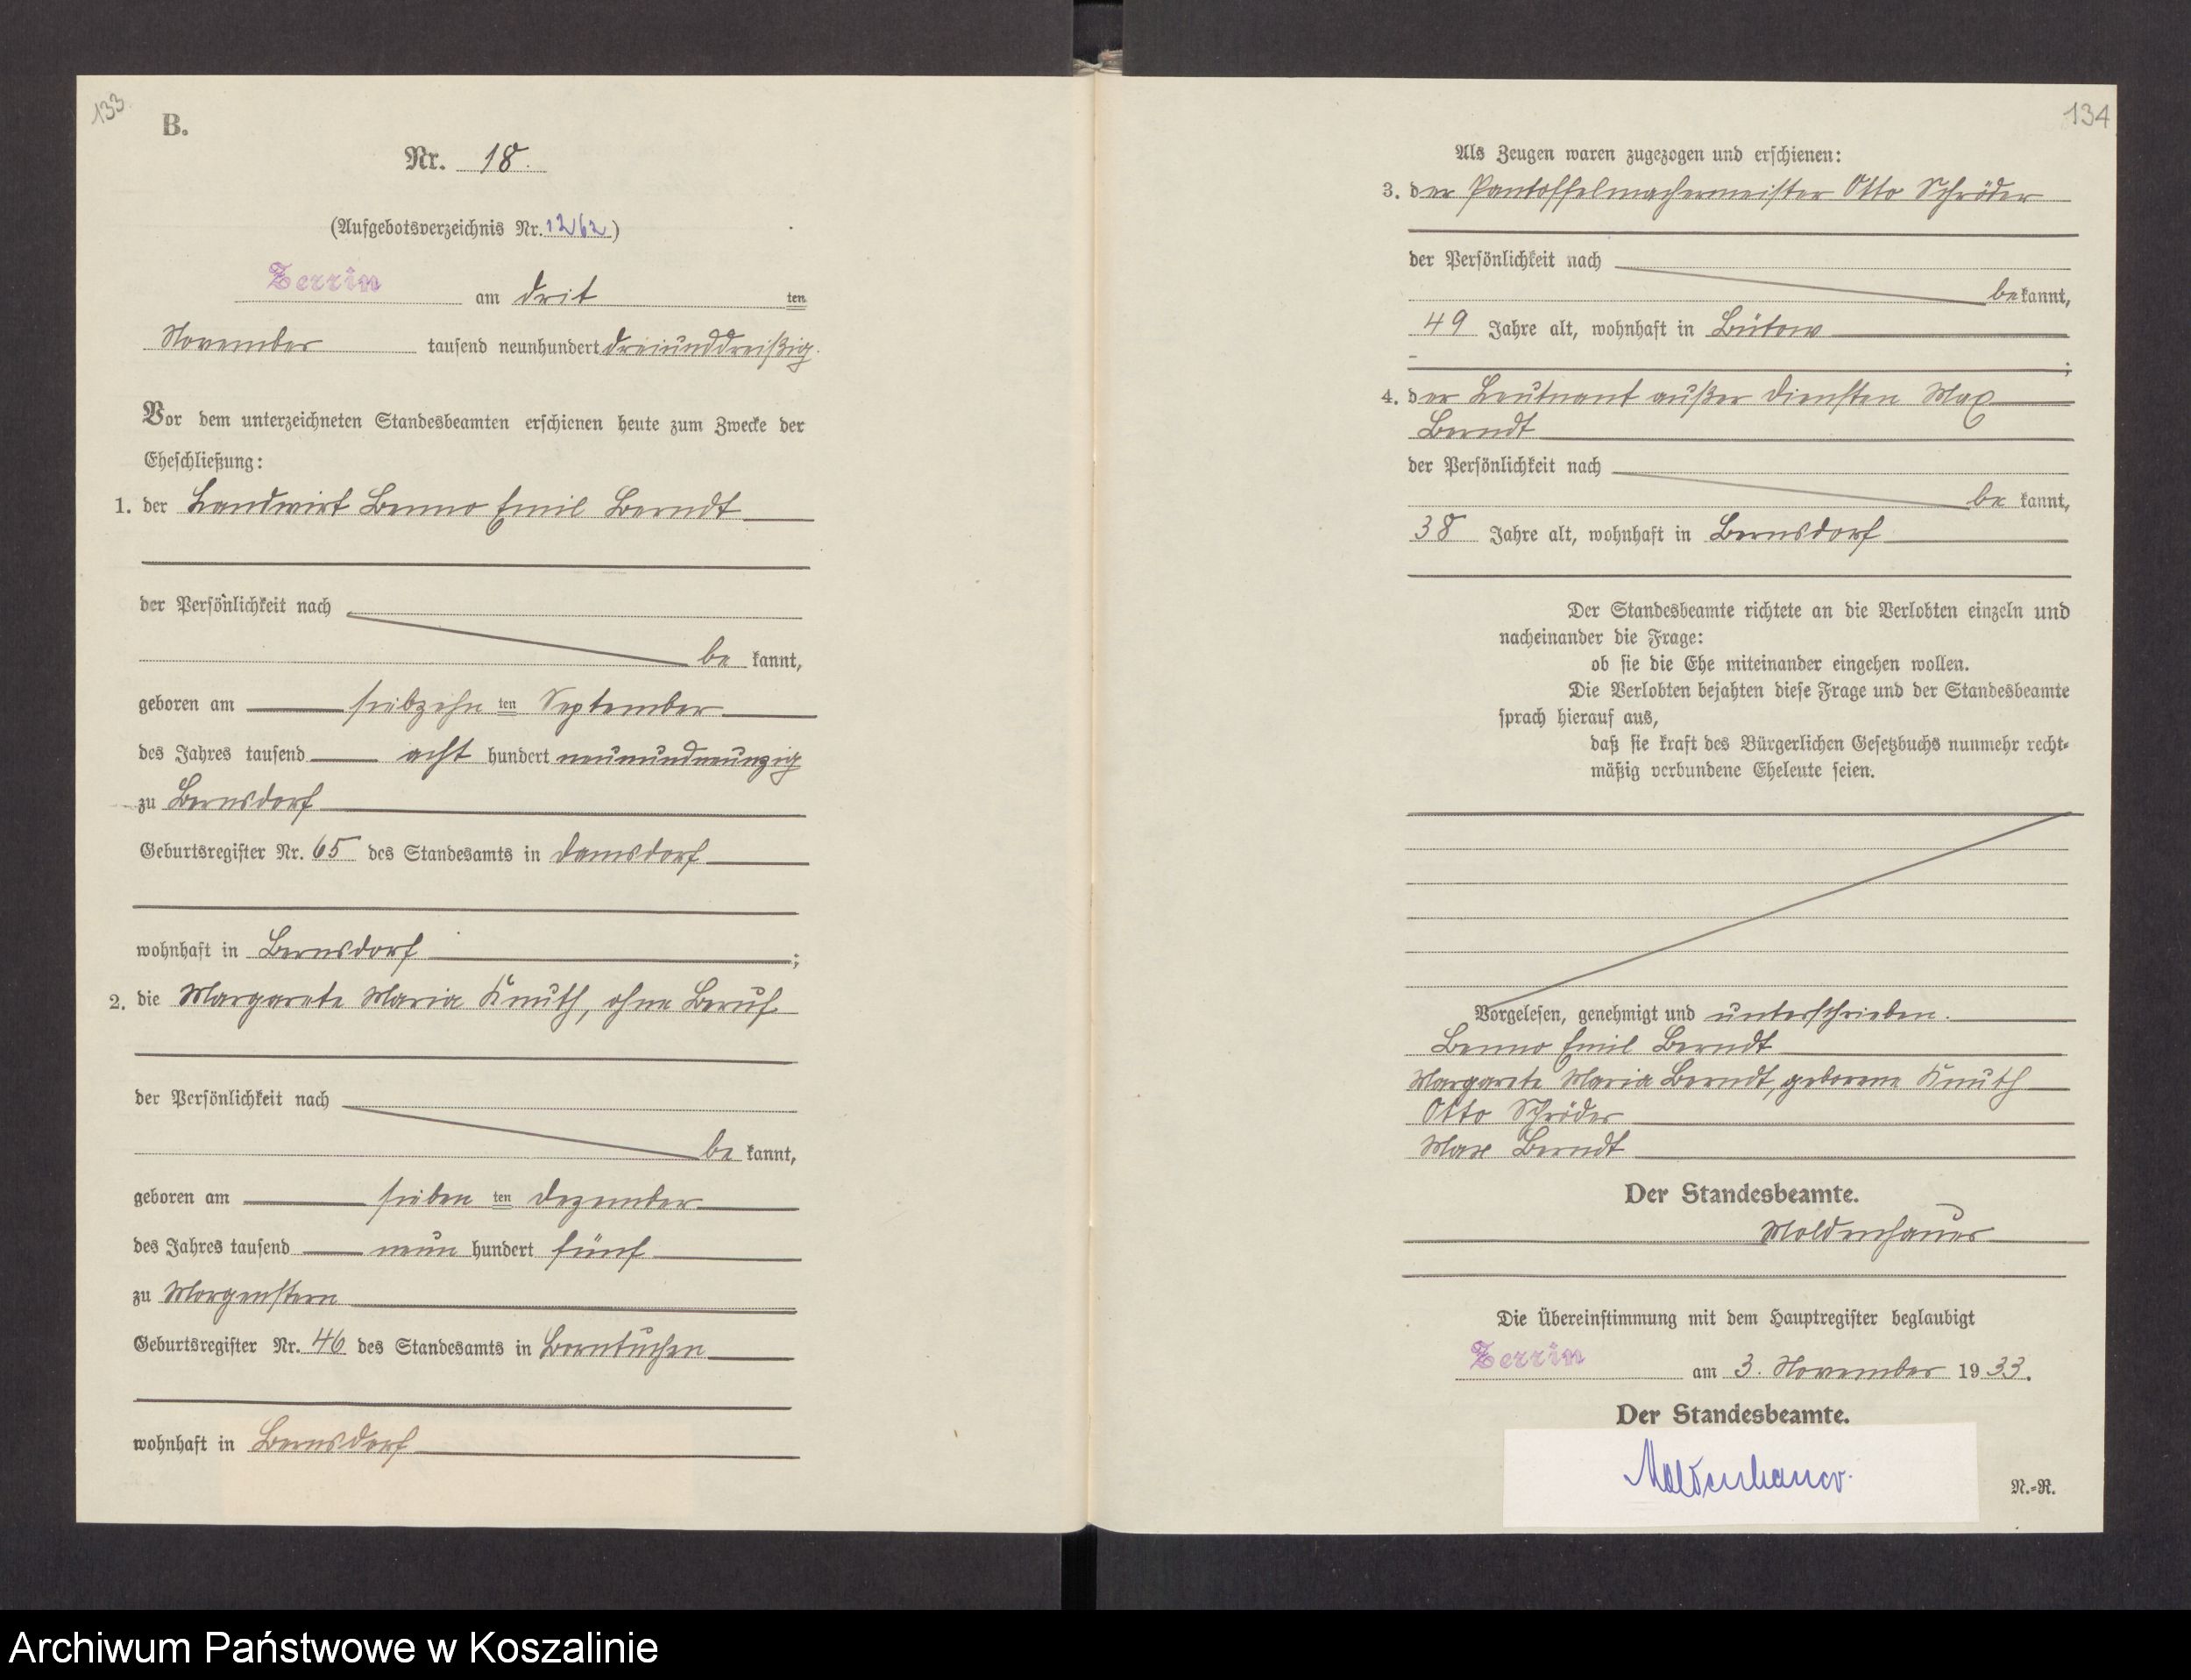 133
B.
Nr. 18.
(Aufgebotsverzeichnis Nr. 1262)
Zerrin am dritten
November tausend neunhundert dreiunddreißig.
Vor dem unterzeichneten Standesbeamten erschienen heute zum Zwecke der
Eheschließung:
1. der Landwirt Benno Emil Berndt
der Persönlichkeit nach
bekannt,
geboren am siebzehnten September
des Jahres tausend acht hundert neunundneunzig
zu Bernsdorf
Geburtsregister Nr. 65 des Standesamts in Damsdorf
wohnhaft in Bernsdorf ;
2. die Margarete Maria Knuth, ohne Beruf
der Persönlichkeit nach
bekannt,
geboren am siebenten Dezember
des Jahres tausend neun hundert fünf
zu Morgenstern
Geburtsregister Nr. 46 des Standesamts in Borntuchen
wohnhaft in Bernsdorf
134
Als Zeugen waren zugezogen und erschienen:
3. der Pantoffelmachermeister Otto Schröder
der Persönlichkeit nach
bekannt,
49 Jahre alt, wohnhaft in Bütow
;
4. der Leutnant außer Diensten Max
Berndt
der Persönlichkeit nach
bekannt,
38 Jahre alt, wohnhaft in Bernsdorf
Der Standesbeamte richtete an die Verlobten einzeln und
nacheinander die Frage:
ob sie die Ehe miteinander eingehen wollen.
Die Verlobten bejahten diese Frage und der Standesbeamte
sprach hierauf aus,
daß sie kraft des Bürgerlichen Gesetzbuchs nunmehr recht-
mäßig verbundene Eheleute seien.
Vorgelesen, genehmigt und unterschrieben.
Benno Emil Berndt
Margarete Maria Berndt, geborene Knuth
Otto Schröder
Max Berndt
Der Standesbeamte.
Moldenhauer
Die Übereinstimmung mit dem Hauptregister beglaubigt
Zerrin am 3. November 1933.
Der Standesbeamte.
Moldenhauer.
N.-R.
Archiwum Państwowe w Koszalinie